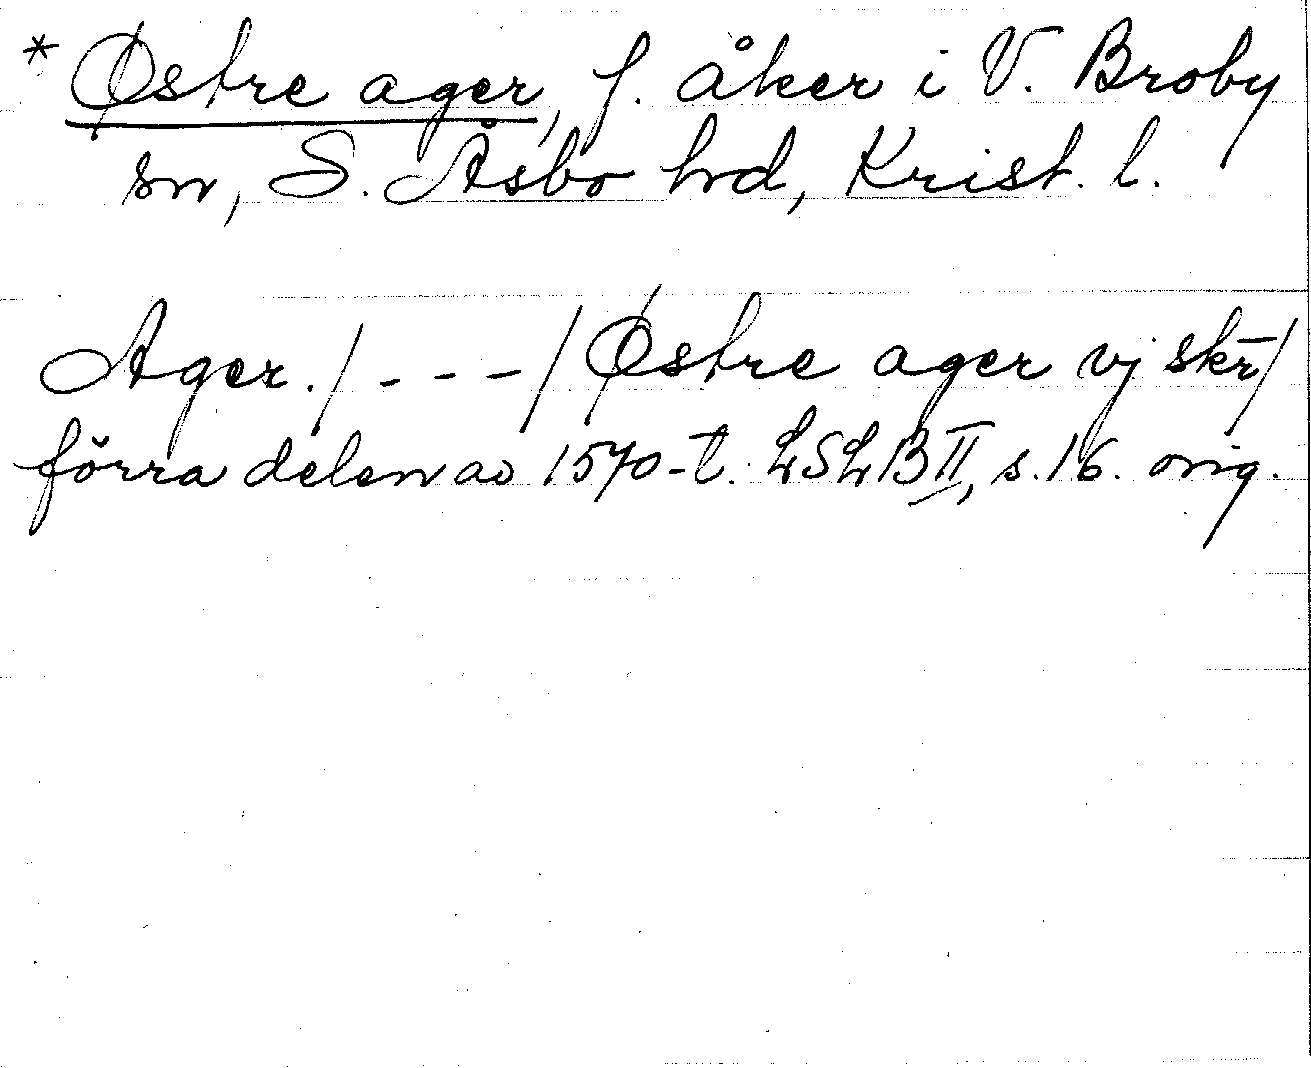 * Østre ager, f. åker i V. Broby
sn, S. Åsbo hd, Krist. l.
Ager. / - - - / Østre ager vj skr̄ /
förra delen av 1570-t. LSLB II, s. 16. orig.